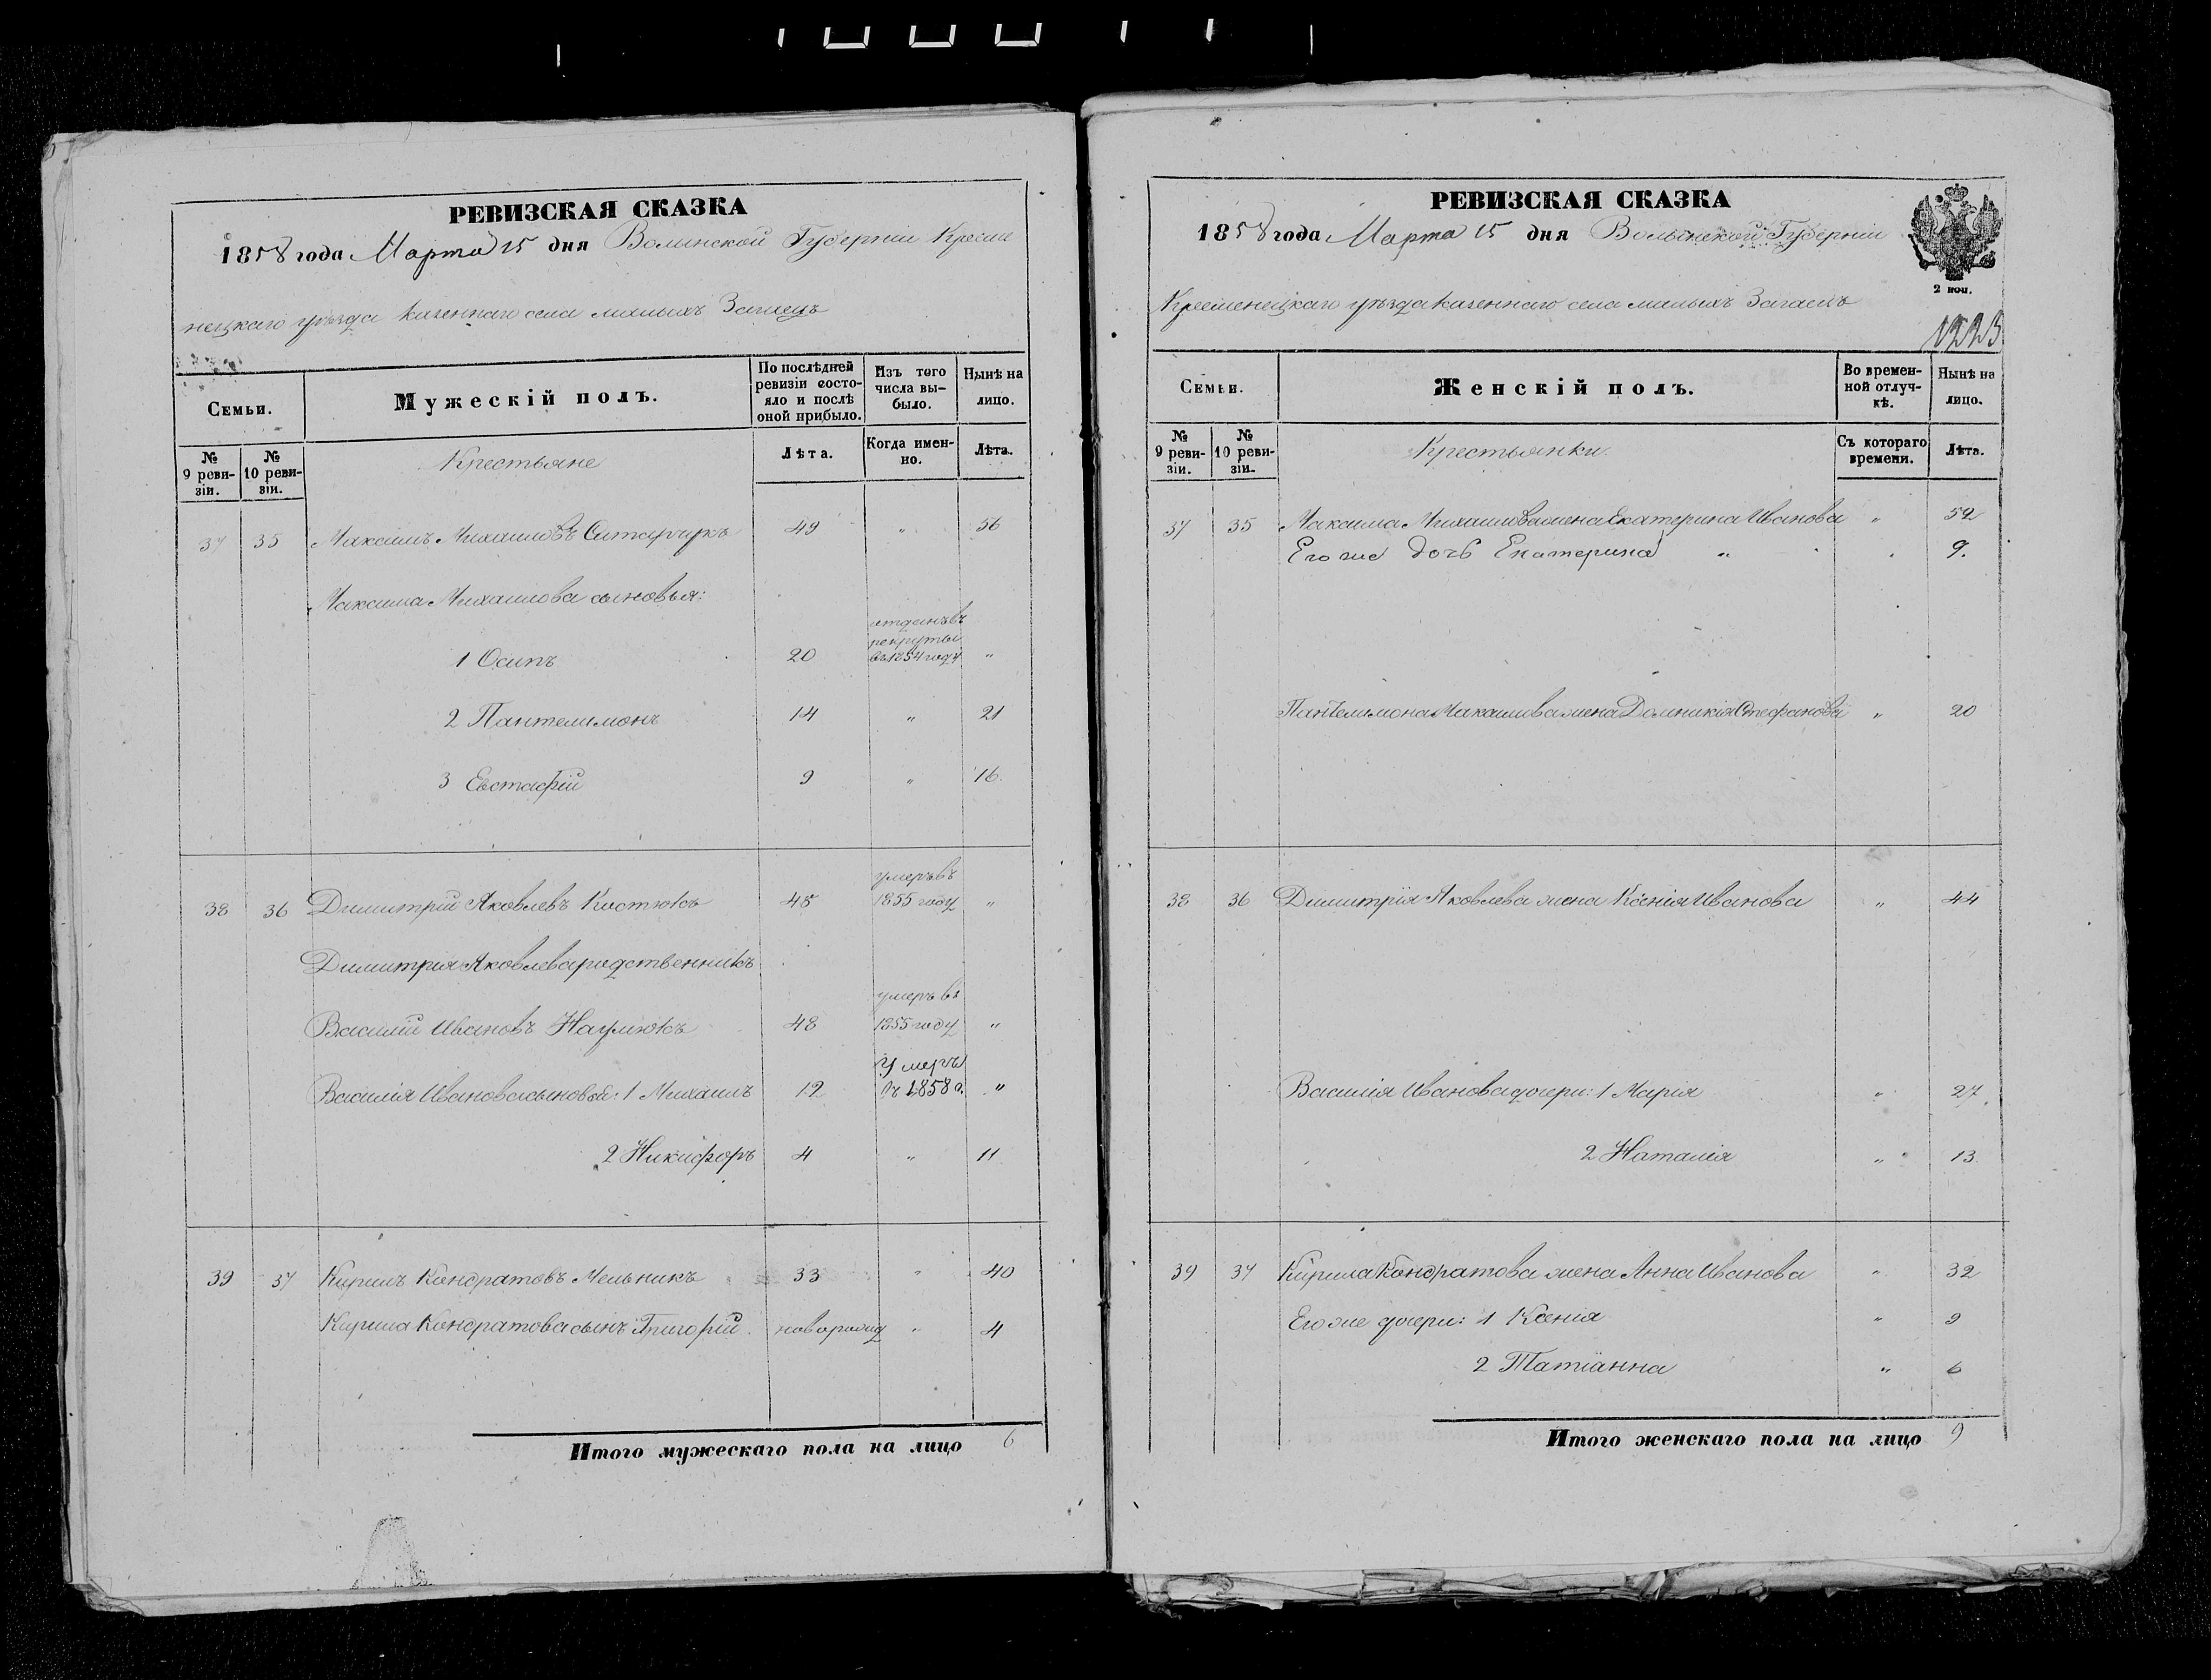 РЕВИЗСКАЯ СКАЗКА
1858 года Марта 15 дня Волынской Губерніи Креме
нецкаго уѣзда казеннаго села малыхъ Загаецъ
Семьи.
Мужескій полъ.
По послѣдней ревизіи состояло и послѣ оной прибыло.
Изъ того числа выбыло.
Нынѣ на лицо.
№ 9 ревизіи.
№ 10 ревизіи.
Крестьяне
Лѣта.
Когда именно.
Лѣта.
37 35 Максимъ Михаиловъ 49 " 56
Максима Михаилова сыновья:
отданъ въ
рекруты
1 Осипъ 20 въ 1854 году "
2 Пантелимонъ 14 " 21
3 Евстафій 9 " 16
умеръ въ
38 36 Димитрій Яковлевъ Костюкъ 48 1855 году "
Димитрія Яковлева родственникъ
умеръ въ
Василій Ивановъ Наумюкъ 48 1855 году "
Умеръ
Василія Иванова сыновья: 1 Михаилъ 12 въ 1858 г. "
2 Никифоръ 4 " 11
39 37 Кирилъ Кондратовъ Мельникъ 33 " 40
Кирила Кондратова сынъ Григорій. новорожд " 4
Итого мужескаго пола на лицо 6
РЕВИЗСКАЯ СКАЗКА
1858 года Марта 15 дня Волынской Губерніи
2 коп.
Кременецкаго уѣзда казеннаго села малыхъ Загаецъ
1223
Семьи.
Женскій полъ.
Во временной отлучкѣ.
Нынѣ на лицо.
№ 9 ревизіи.
№ 10 ревизіи.
Крестьянки.
Съ котораго времени.
Лѣта.
37 35 Максима Михаилова жена Екатерина Иванова " 52
Его же дочь Екатерина " 9.
Пантелимона Максимова жена Домникія Стефанова " 20
38 36 Димитрія Яковлева жена Ксенія Иванова " 44
Василія Иванова дочери: 1 Марія " 27
2 Наталія " 13
39 37 Кирила Кондратова жена Анна Иванова " 32
Его же дочери: 1 Ксенія " 9
2 Татіанна " 6
Итого женскаго пола на лицо 9